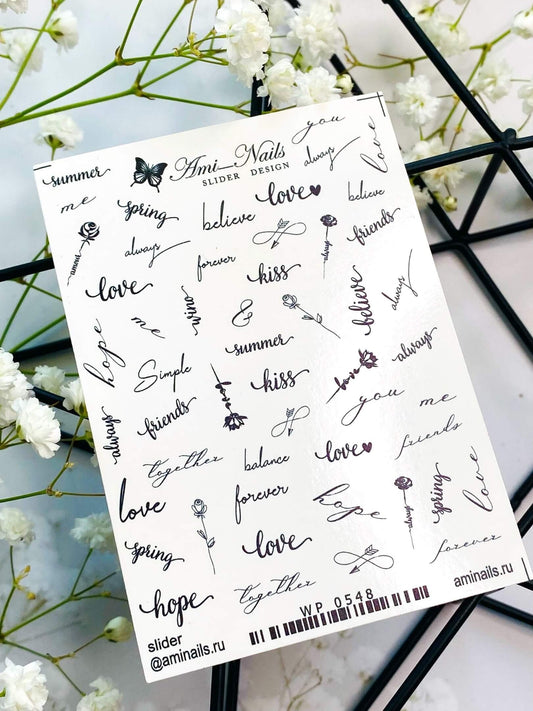 you
summer
Ami_Nails
SLIDER DESIGN
always
love
me
spring
believe
love
believe
amour
always
forever
always
friends
love
wino
kiss
believe
always
hope
me
&
summer
Simple
love
kiss
love
always
always
friends
you
me
together
balance
love
friends
love
forever
hope
always
spring
love
spring
love
forever
hope
together
WP 0548
aminails.ru
slider
@aminails.ru